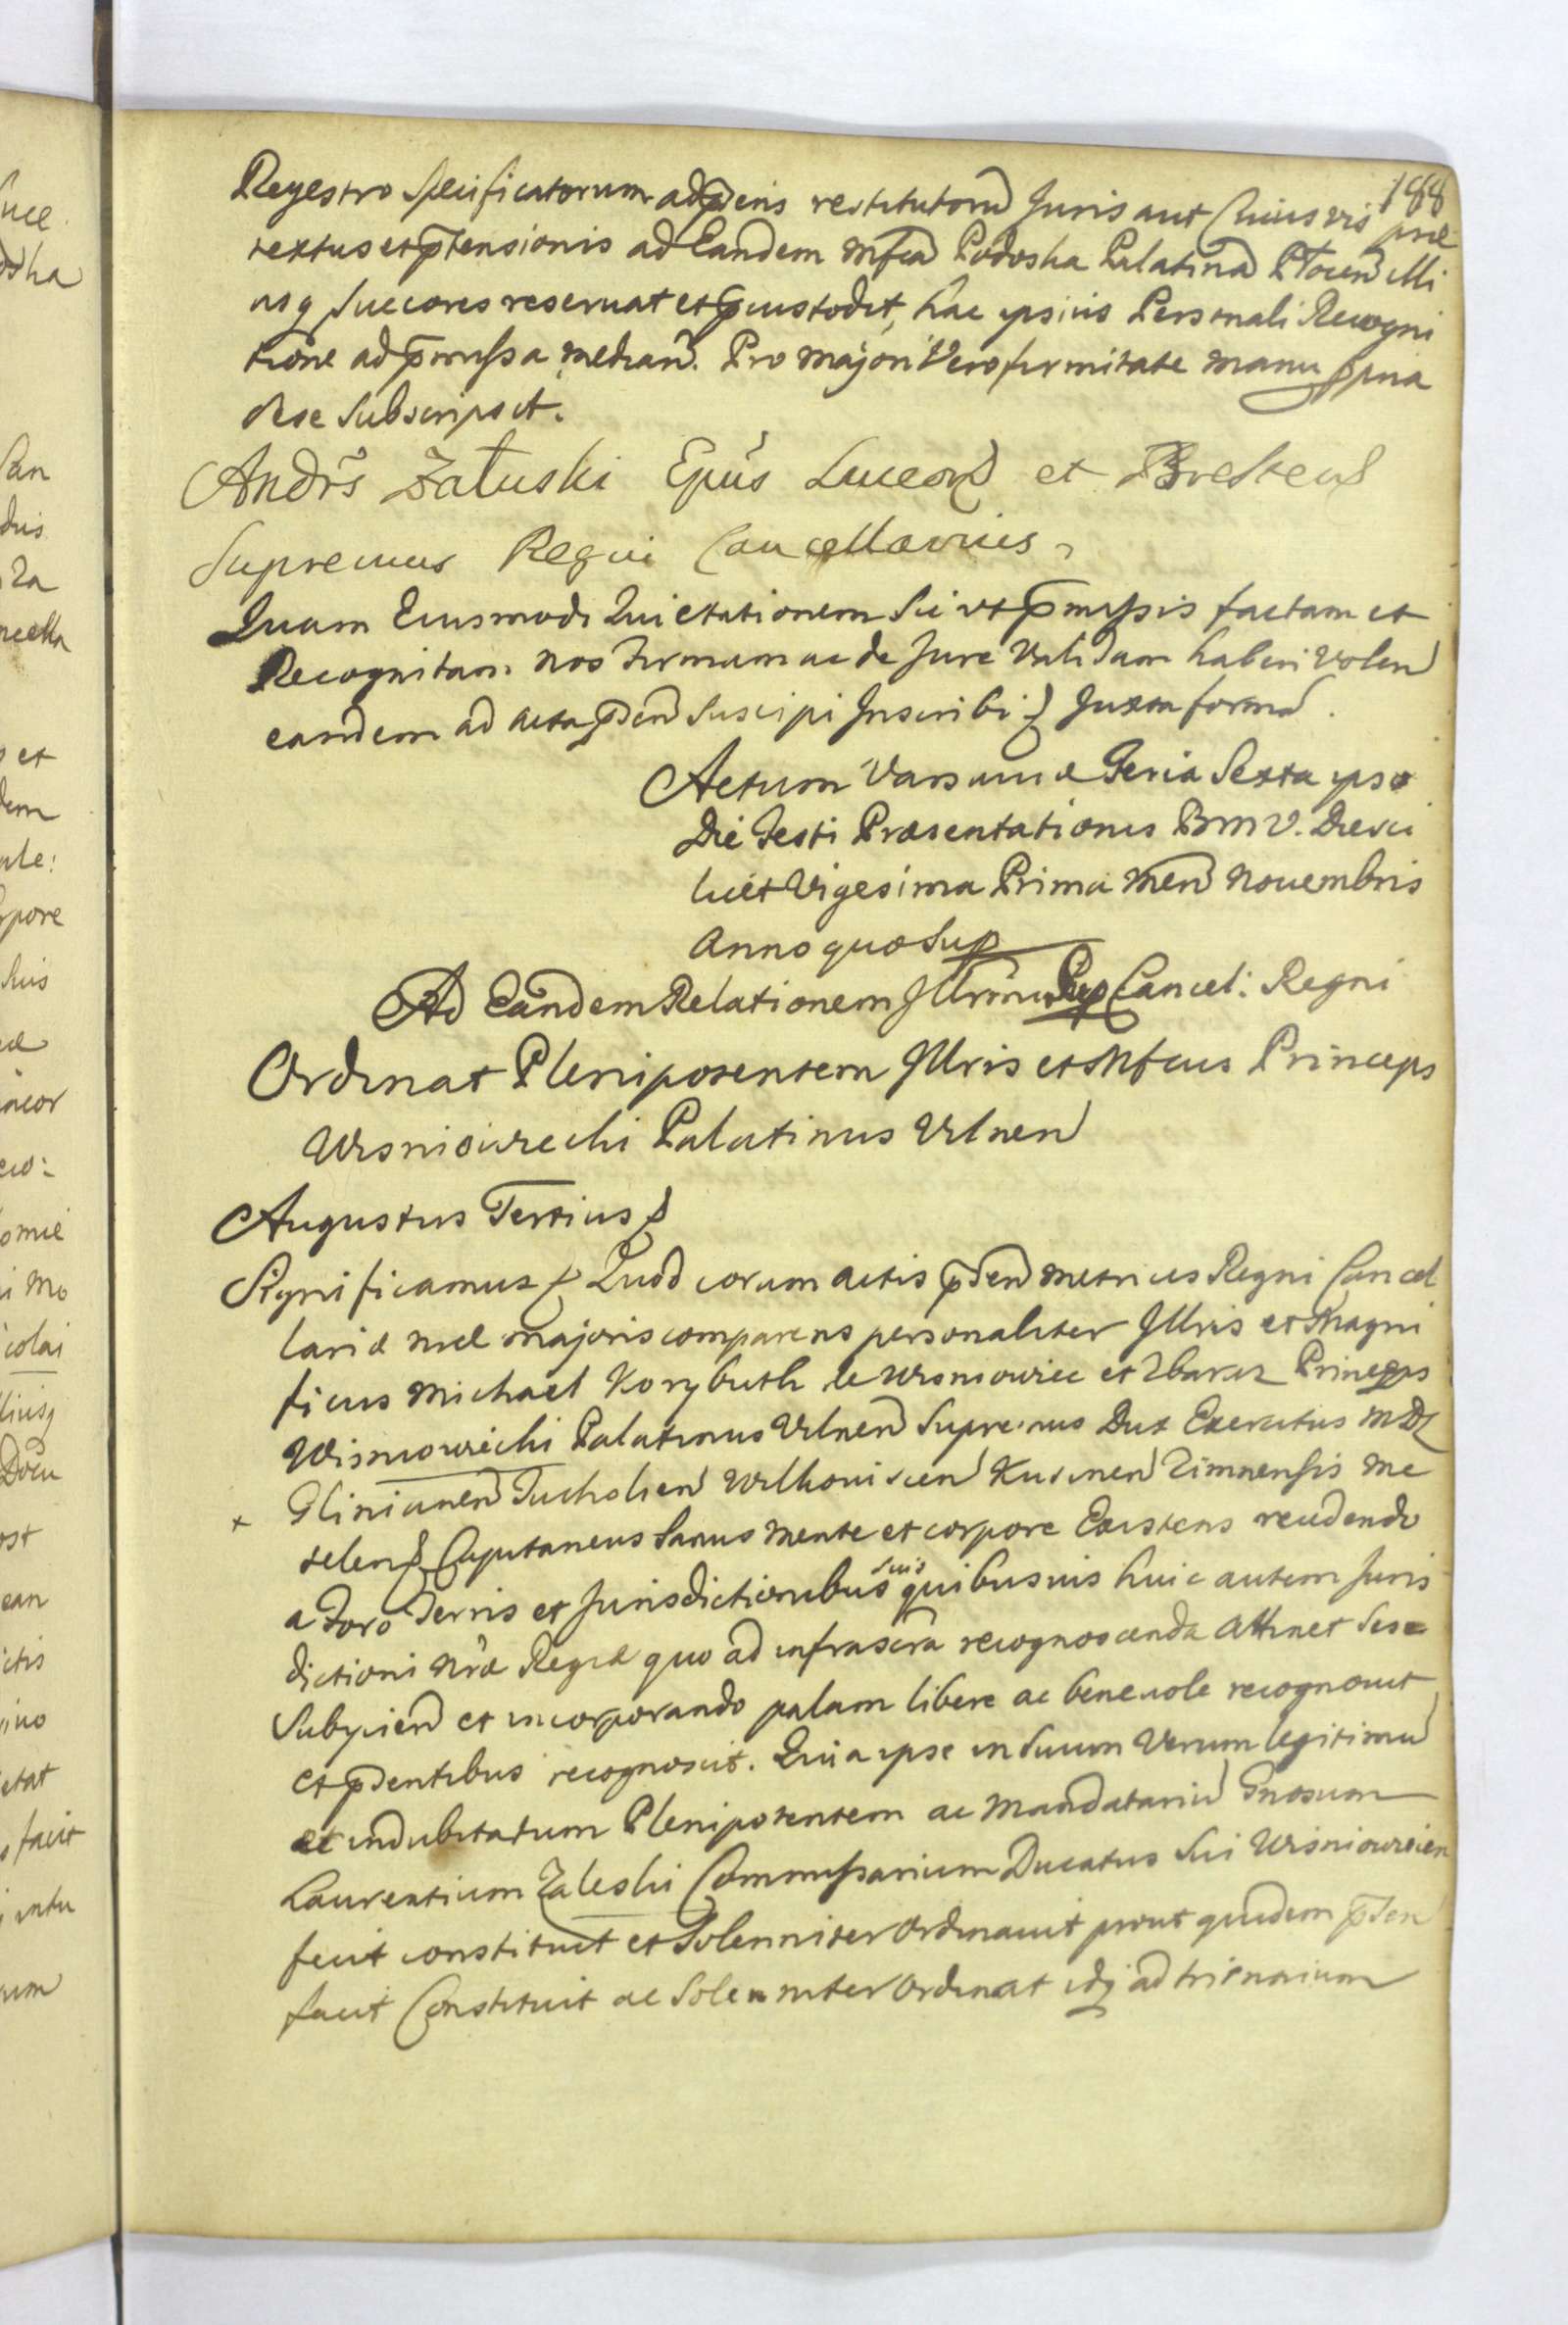 188
Regestro Specificatorum ad p̄dens restitutorū Juris aut Cuiusvis præ
textus et p̄tensionis ad Eandem Mfcā Podoska Palatinā Plocen̄ illi
usq Succores reservat et p̄custodit, hac ipsius Personali Recogni
tione ad p̄missa median̄. Pro majori Vero firmitate manu ppria
sese Subscripsit.
Andr̃s Załuski Epũs Luceor̄ et Brestens
Supremus Regni Cancellarius
Quam Eiusmodi Quietationem Sic ut p̄missis factam et
Recognitam nos Firmam ac de Jure Validam haberi Volen
eandem ad Acta p̄sen Suscipi Inscribi Juxta formā.
Actum Varsaviæ Feria Sexta ipso
Die Festi Præsentationis B M V. Die sci
licet Vigesima Prima Men̄ Novembris
Anno quo Sup
Ad Eandem Relationem Illr̃mi Sup Cancel: Regni
Ordinat Plenipotentem Illris et Mfcus Princeps
Wisniowiecki Palatinus Vilnen
Augustus Tertius
Significamus Quod coram Actis p̄sen Metrices Regni Cancel
lariæ nræ majoris comparens personaliter Illris et Magni
ficus Michael Korybuth de Wisniowiec et Zbaraz Princeps
Wisniowiecki Palatinus Vilnen Supremus Dux Exercitus MDL
+ Glinianen Tucholien Wilkoviscen Kusinen Zimnensis Me
telens Capitaneus Sanus Mente et corpore Existens recedendo
a Foro Terris et Jurisdictionibus suis quibusvis huic autem Juris
dictioni Nrã Regiæ quo ad infrascra recognoscenda Attinet Sese
Subijcien et incorporando palam libere ac benevole recognovit
et p̄sentibus recognoscit. Quia ipse in Suum Verum legitimū
et indubitatum Plenipotentem ac Mandatariū Gnosum
Laurentium Zaleski Commissarium Ducatus Sui Wisniowiecen
fecit constituit et Solenniter Ordinavit prout quidem p̄sen
facit Constituit ac Solenniter Ordinat idq ad trinarium